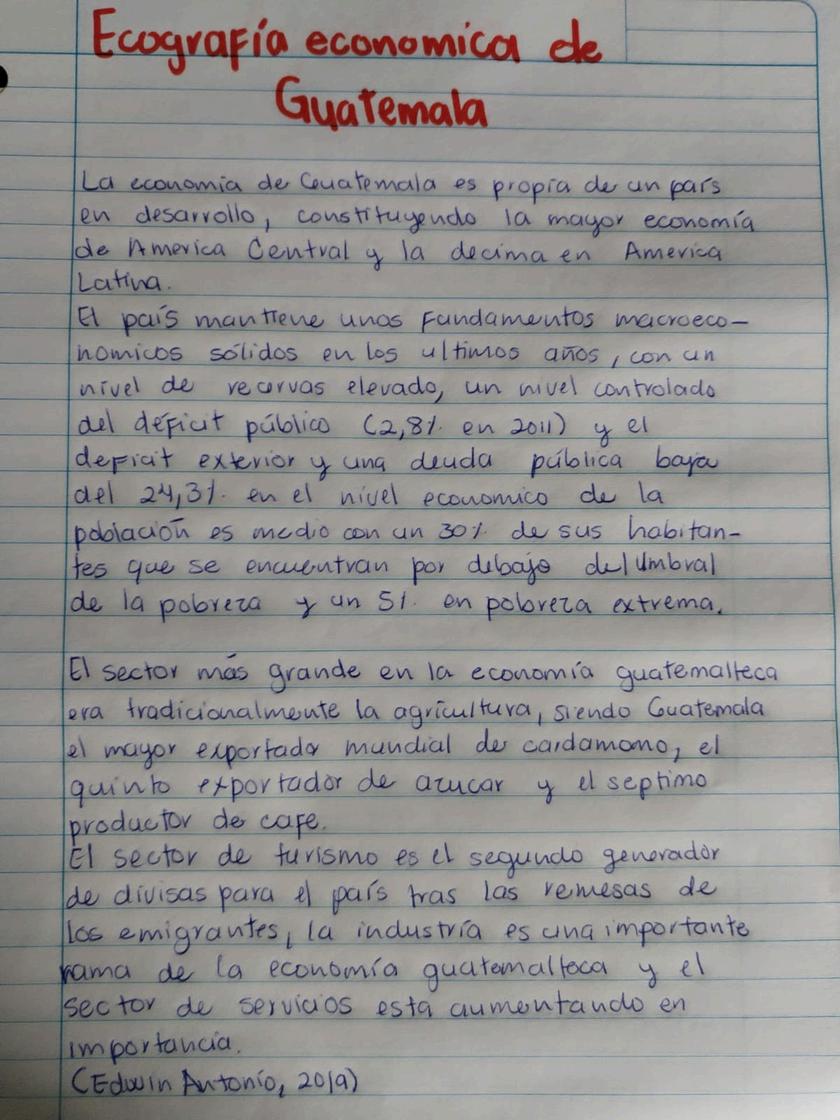 Ecografía economica de
Guatemala
La economía de Guatemala es propia de un país
en desarrollo, constituyendo la mayor economía
de America Central y la decima en America
Latina.
El país mantiene unos fundamentos macroeco-
nomicos sólidos en los ultimos años, con un
nivel de recervas elevado, un nivel controlado
del déficit público (2,8% en 2011) y el
deficit exterior y una deuda pública baja
del 24,3% en el nivel economico de la
población es medio con un 30% de sus habitan-
tes que se encuentran por debajo del Umbral
de la pobreza y un 5% en pobreza extrema.
El sector más grande en la economía guatemalteca
era tradicionalmente la agricultura, siendo Guatemala
el mayor exportador mundial de cardamomo, el
quinto exportador de azucar y el septimo
productor de cafe.
El sector de turismo es el segundo generador
de divisas para el país tras las remesas de
los emigrantes, la industria es una importante
rama de la economía guatemalteca y el
sector de servicios esta aumentando en
importancia.
(Edwin Antonio, 2019)